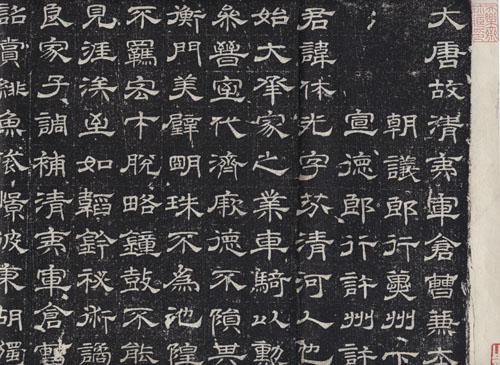 大唐故清夷軍倉曹兼本
朝議郎行冀州下
宣德郎行許州許
君諱休光字清河人也
始大承家之業車騎以勳
晉室代濟厥德不隕其
衡門美璧明珠不為池隍
不羈宏才脫略鐘鼓不能
見涯涘至如韜鈐秘術譎
良家子調補清夷軍倉曹
詔賞緋魚袋憬彼東胡獨